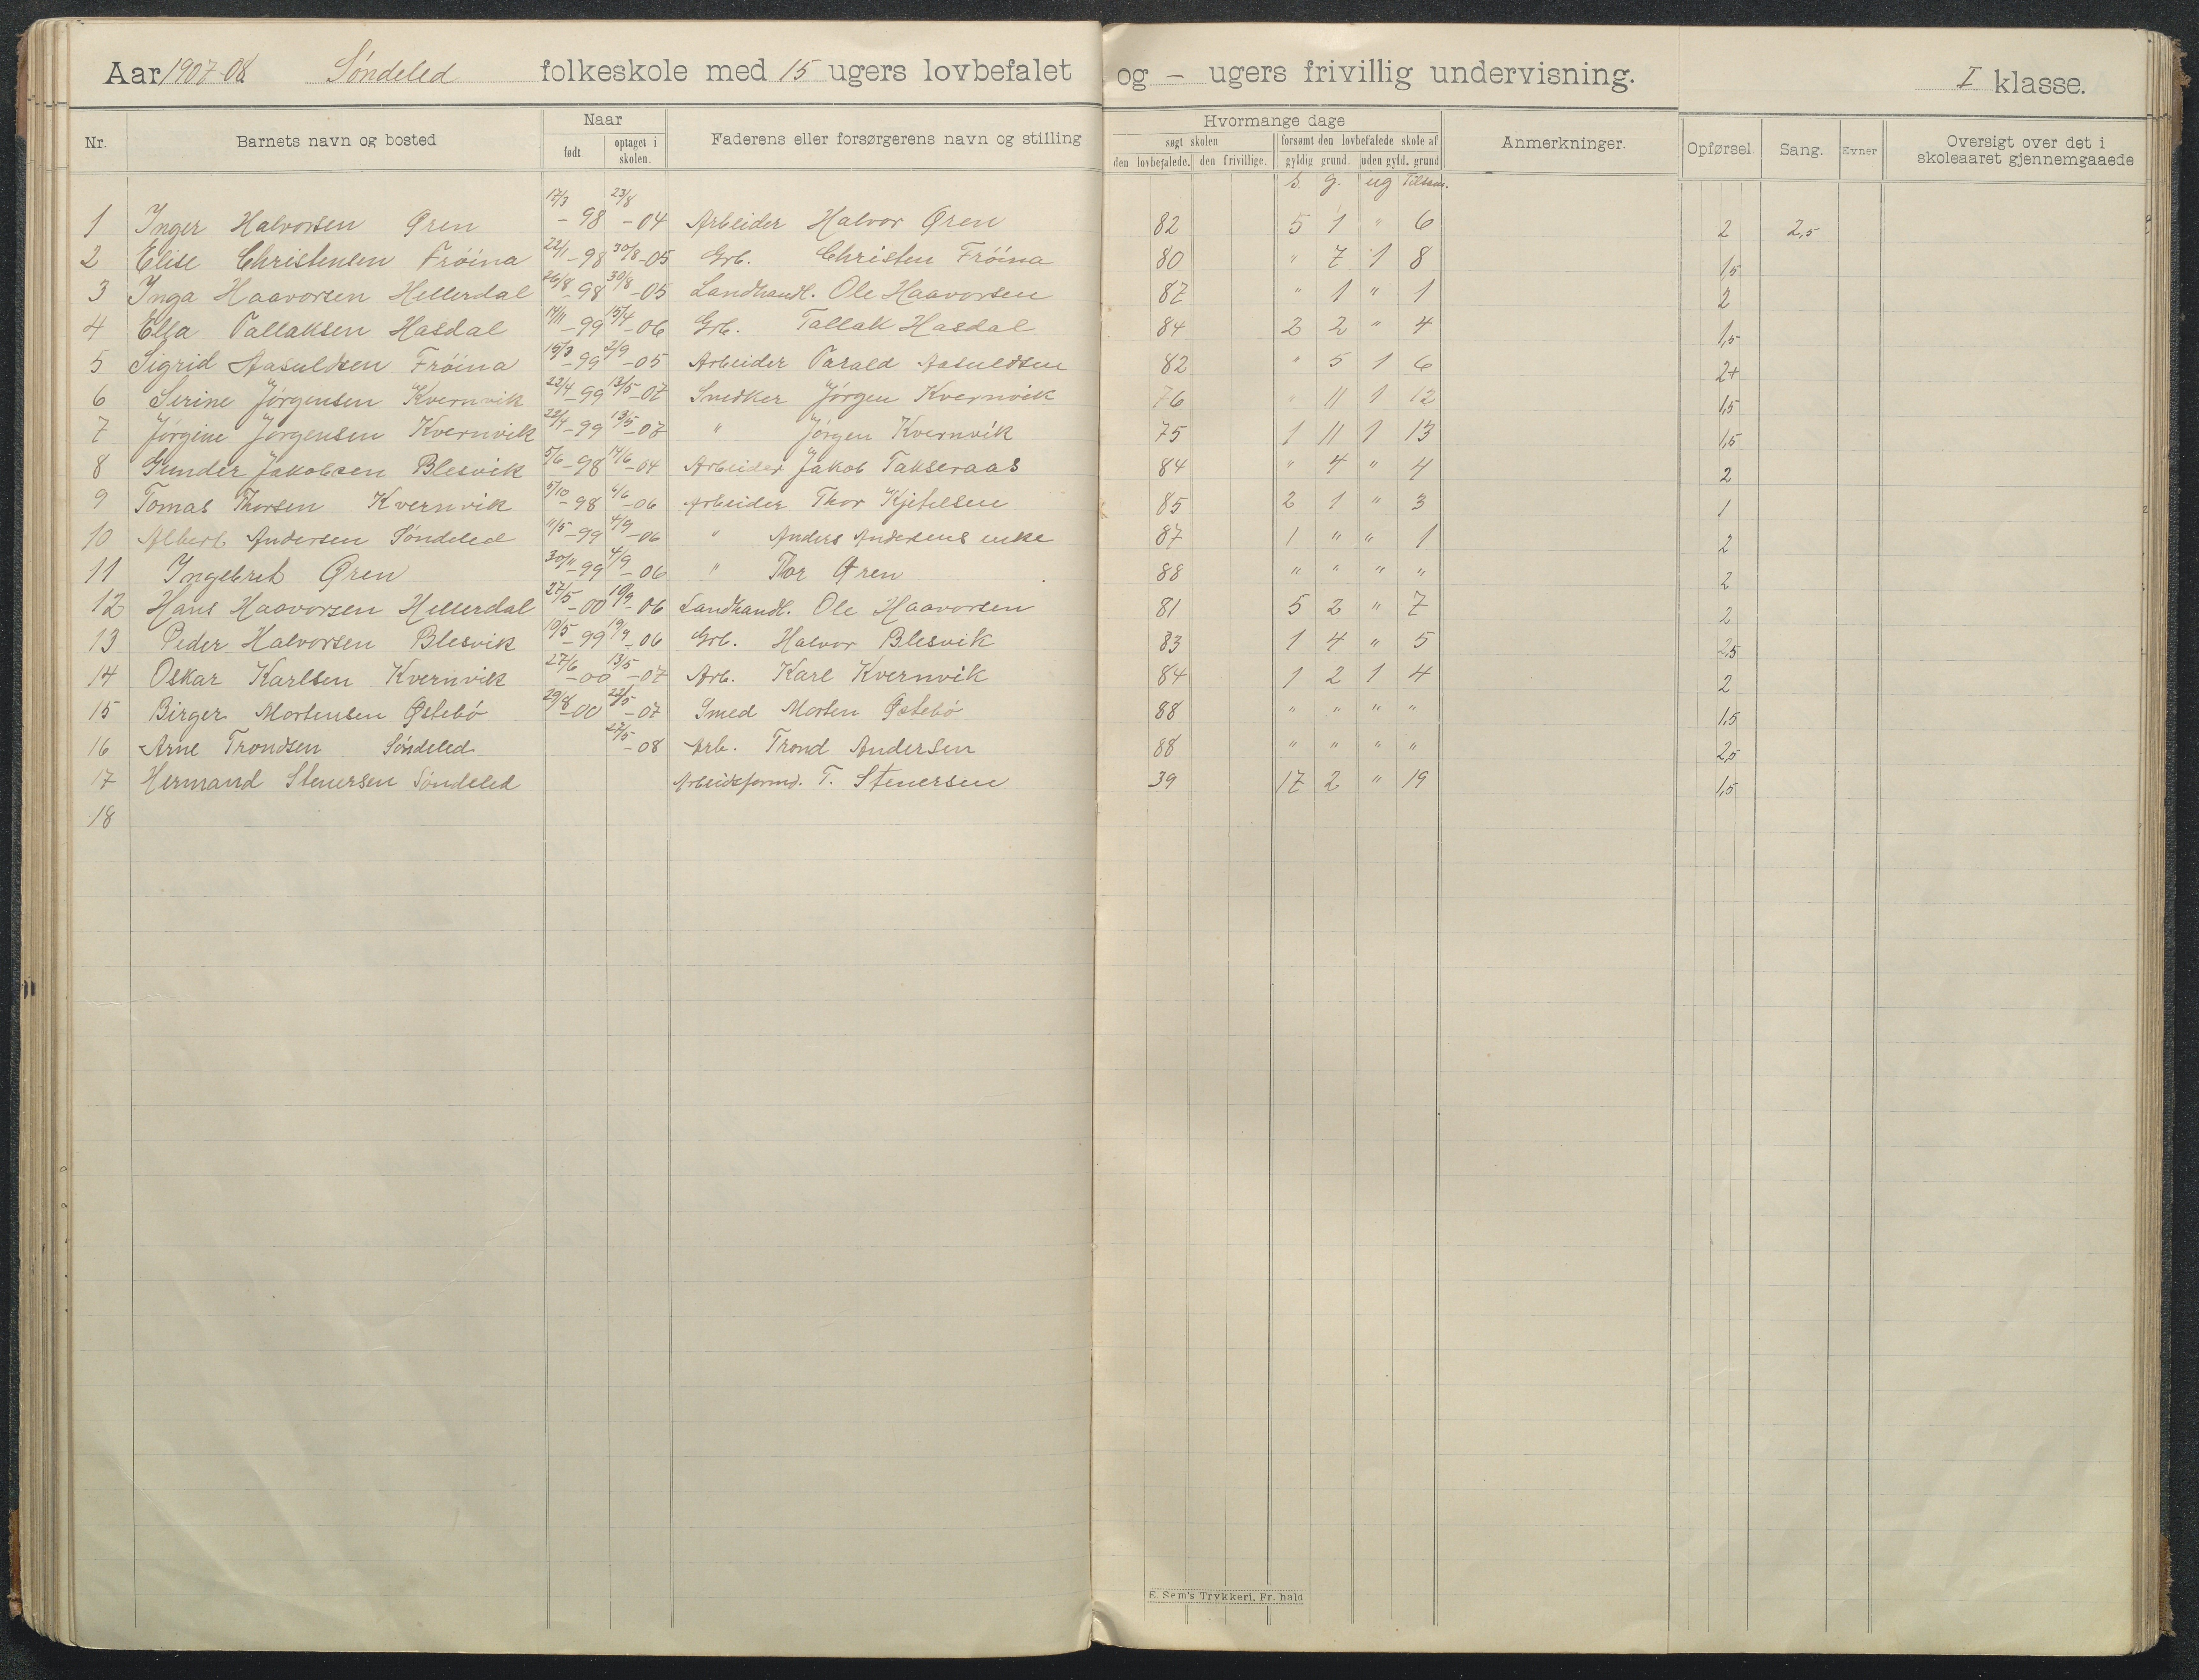 Aar 1907-08 Søndeled folkeskole med 15 ugers lovbefalet og - ugers frivillig undervisning. I klasse.
Nr. Barnets navn og bosted Naar født optaget i skolen. Faderens eller forsørgerens navn og stilling Hvormange dage søgt skolen den lovbefalede. den frivillige. forsømt den lovbefalede skole af gyldig grund. uden gyld. grund Anmerkninger. Opførsel Sang. Evner Oversigt over det i skoleaaret gjennemgaaede
s. g. ug Tilsam.
1 Inger Halvorsen Øren 17/3-98 23/8-04 Arbeider Halvor Øren 82 5 1 " 6 2 2,5
2 Elise Christensen Frøina 22/1-98 30/8-05 Grb. Christen Frøina 80 " 7 1 8 1,5
3 Inga Haavorsen Hellerdal 26/8-98 30/8-05 Landhandl. Ole Haavorsen 87 " 1 " 1 2
4 Ella Tallaksen Hasdal 14/11-99 15/4-06 Grb. Tallak Hasdal 84 2 2 " 4 1,5
5 Sigrid Aasuldsen Frøina 15/3-99 2/9-05 Arbeider Tarald Aasuldsen 82 " 5 1 6 2+
6 Serine Jørgensen Kvernvik 22/4-99 13/5-07 Snedker Jørgen Kvernvik 76 " 11 1 12 1,5
7 Jørgine Jørgensen Kvernvik 22/4-99 13/5-07 " Jørgen Kvernvik 75 1 11 1 13 1,5
8 Gunder Jakobsen Blesvik 5/6-98 14/6-04 Arbeider Jakob Takseraas 84 " 4 " 4 2
9 Tomas Thorsen Kvernvik 5/10-98 6/6-06 Arbeider Thor Kjetelsen 85 2 1 " 3 1
10 Albert Andersen Søndeled 11/5-99 4/9-06 " Anders Andersens enke 87 1 " " 1 2
11 Ingebret Øren 30/11-99 4/9-06 " Thor Øren 88 " " " " 2
12 Hans Haavorsen Hellerdal 27/5-00 10/9-06 Landhandl. Ole Haavorsen 81 5 2 " 7 2
13 Peder Halvorsen Blesvik 19/5-99 19/9-06 Grb. Halvor Blesvik 83 1 4 " 5 2,5
14 Oskar Karlsen Kvernvik 27/6-00 13/5-07 Arb. Karl Kvernvik 84 1 2 1 4 2
15 Birger Mortensen Østebø 29/8-00 22/5-07 Smed Morten Østebø 88 " " " " 1,5
16 Arne Trondsen Søndeled 27/5-08 Arb. Trond Andersen 88 " " " " 2,5
17 Hermand Stenersen Søndeled Arbeidsformd. T. Stenersen 39 17 2 " 19 1,5
18
E. Sem's Trykkeri, Fr. hald